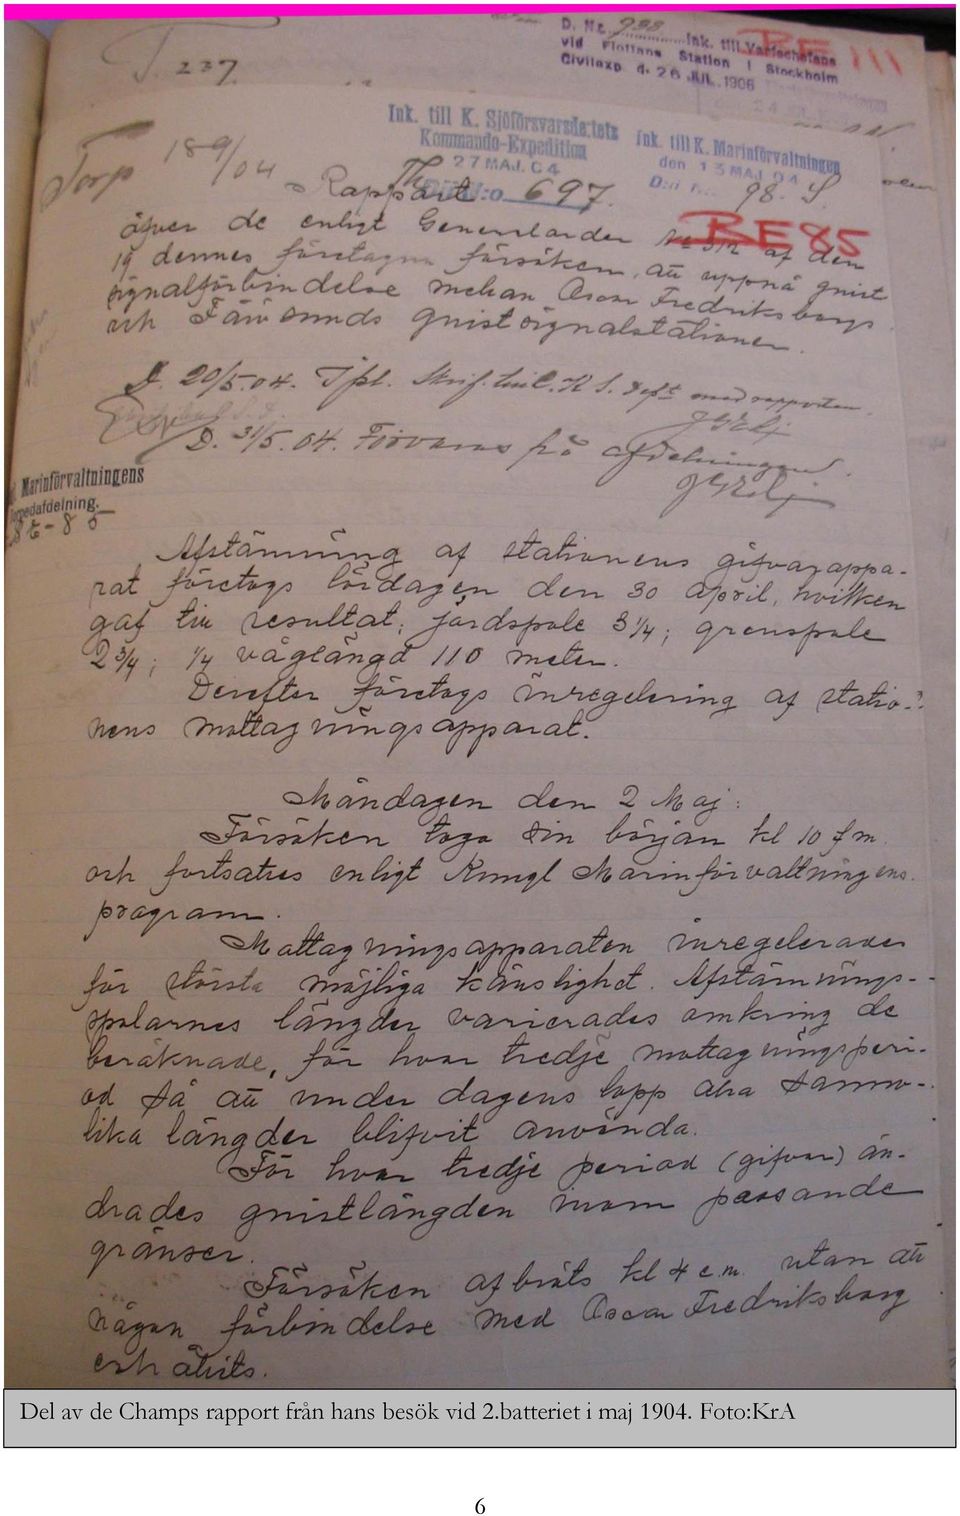 D. Nr. 938 Ink. till Varfschefens
vid Flottans Station i Stockholm
Civilexp. d. 26 JUL. 1906
BE III
T. 237.
Ink. till K. Sjöförsvarsdep:tets
Kommando-Expedition
27 MAJ. 04
D:o 697.
Ink. till K. Marinförvaltningen
den 13 MAJ 04
D:n 98. S.
Torp 189/04
Rapport
BE 85
öfver de enligt Generalorder af den
19 dennes företagna försöken att uppnå gnist
signalförbindelse mellan Oscar Fredriksborgs
och Fårösunds gnistsignalstationer.
D. 20/5.04. med rapporten.
D. 31/5.04. Förvaras på afdelningen.
Marinförvaltningens
Torpedafdelning.
Afstämning af stationens gifvarappa-
rat företogs lördagen den 30 april, hvilken
gaf till resultat: jordspole 3 1/4; grenspole
2 3/4; 1/4 våglängd 110 meter.
Derefter företogs inregelering af statio-
nens mottagningsapparat.
Måndagen den 2 Maj:
Försöken togo sin början kl 10 f m.
och fortsattes enligt Kungl Marinförvaltningens
program.
Mottagningsapparaten inregelerades
för största möjliga känslighet. Afstämnings-
spolarnes längder varierades omkring de
beräknade, för hvar tredje mottagningsperi-
od så att under dagens lopp alla sanno-
lika längder blifvit använda.
För hvar tredje period (gifvar) än-
drades gnistlängden inom passande
gränser.
Försöken afbröts kl 4 e.m. utan att
någon förbindelse med Oscar Fredriksborg
erhållits.
Del av de Champs rapport från hans besök vid 2.batteriet i maj 1904. Foto:KrA
6